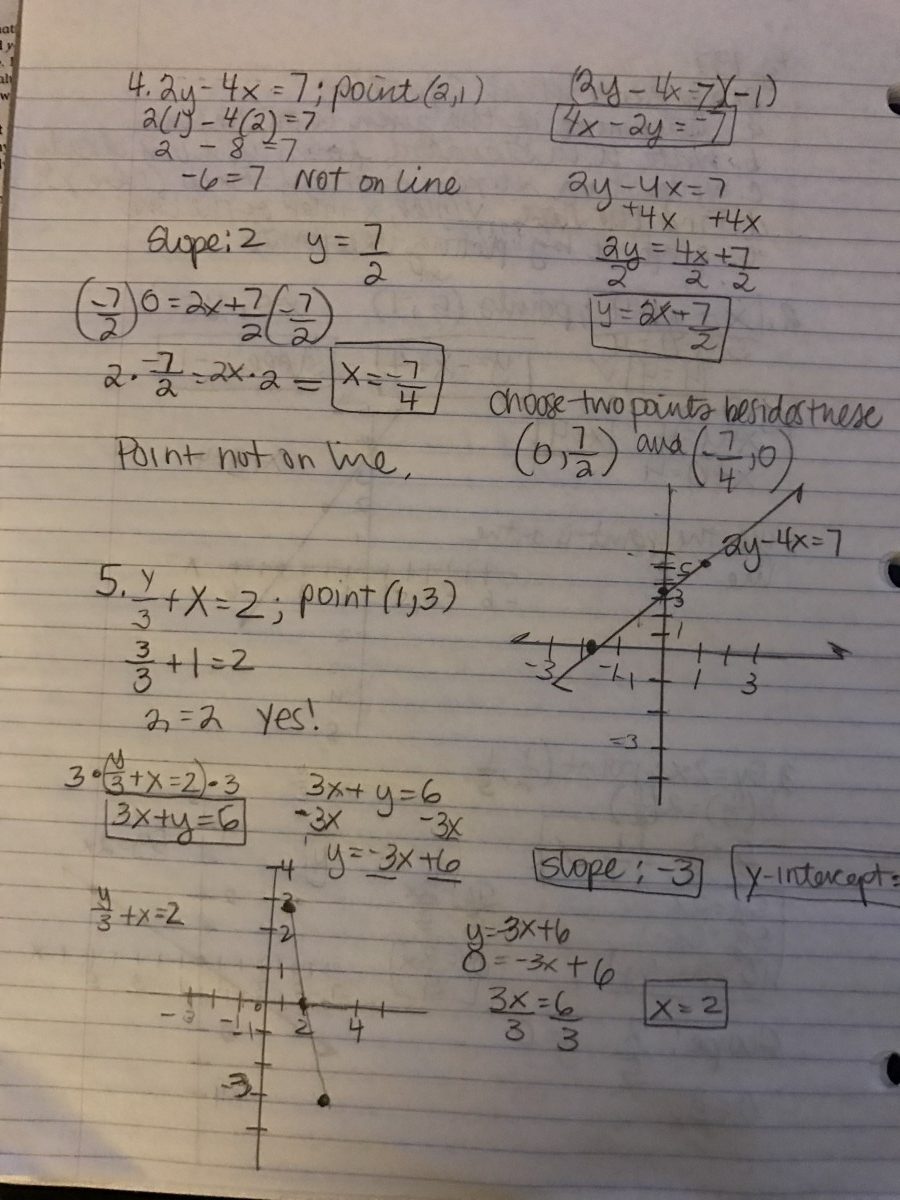 4. 2y - 4x = 7; point (2,1)
2(1) - 4(2) = 7
2 - 8 = 7
-6 = 7 Not on line
Slope: 2 y = 7/2
(-7/2) 0 = 2x + 7/2 (-7/2)
2 · -7/2 = 2x · 2 = x = -7/4
Point not on line.
(2y - 4x = 7)(-1)
4x - 2y = -7
2y - 4x = 7
+4x +4x
2y/2 = 4x/2 + 7/2
y = 2x + 7/2
Choose two points besides these
(0, 7/2) and (-7/4, 0)
2y - 4x = 7
5
3
1
-3 -1 1 3
-1
-3
5. y/3 + x = 2; point (1,3)
3/3 + 1 = 2
2 = 2 yes!
3 · (y/3 + x = 2) · 3
3x + y = 6
3x + y = 6
-3x -3x
y = -3x + 6
slope: -3 y-intercept =
y/3 + x = 2
4
3
2
1
-3 -1 0 2 4
-1
-3
y = -3x + 6
0 = -3x + 6
3x/3 = 6/3
x = 2